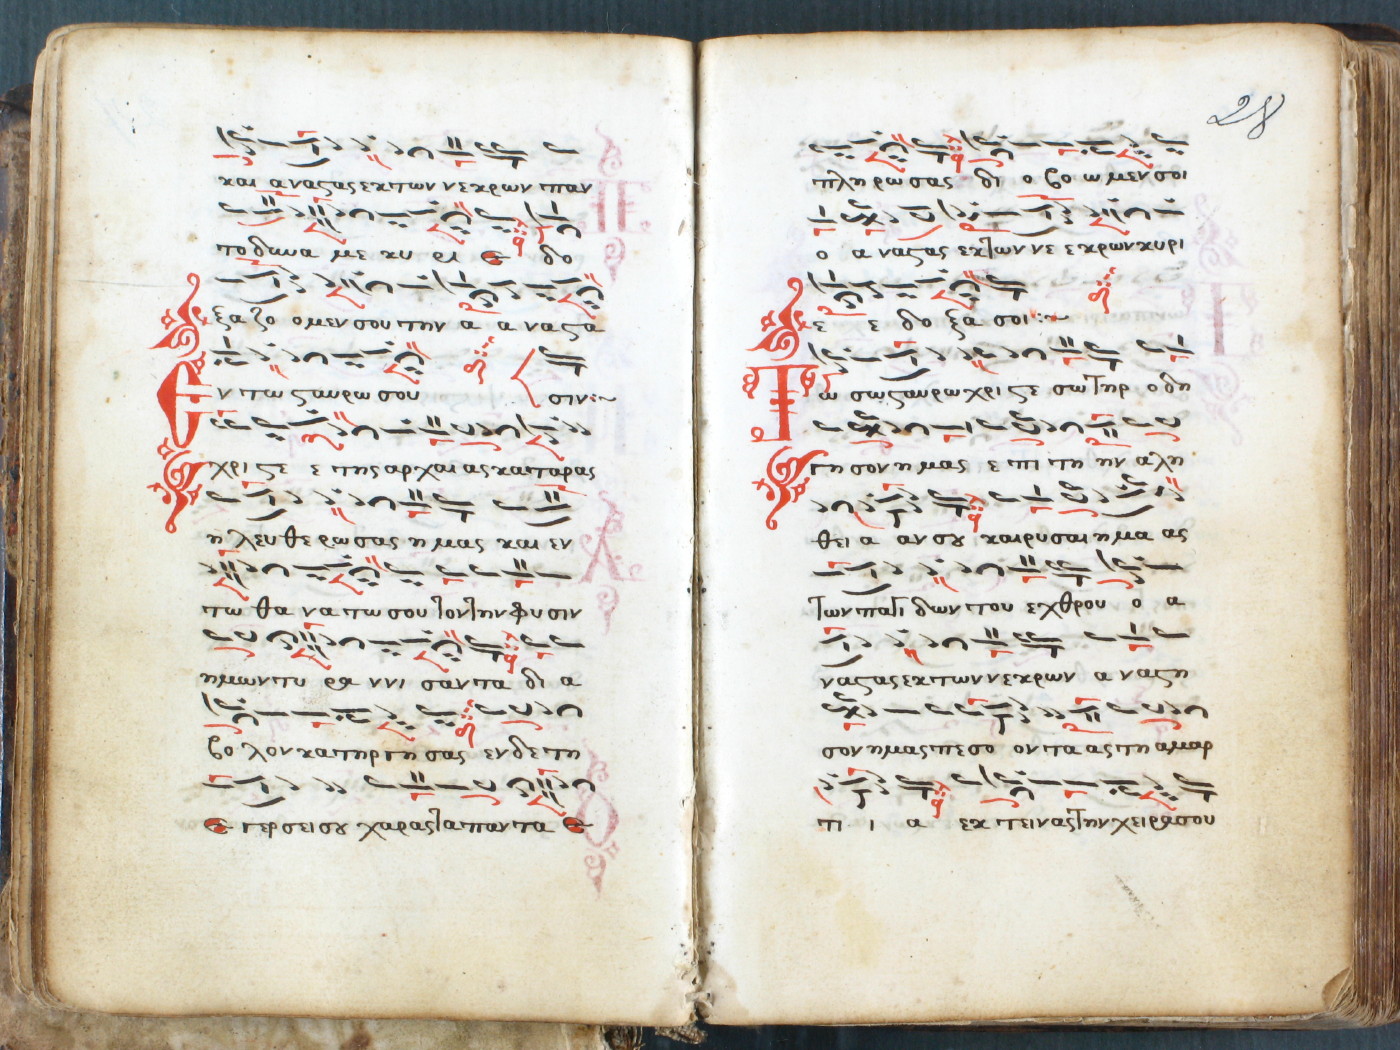 και αναςας εκ των νεκρων παν
το δυνα με κυ ρι ε δο
ξα ζο ο μεν σου την α α νας α
ν τω ςαυρω σου σιν:~
Ε
χρι ςε ε της αρ χαι ας κα τα ρας
η λευ θε ρω σας η μας και εν
τω θα να τω σου τον την φυ σιν
ημων τυ ρα ννι σαν τα δι α
βο λον κα τηρ γη σας εν δε τη
ε γερ σει σου χαρας τα παν τα ε
28
πλη ρω σας δι ο βο ω μεν σοι
ο α ναςας εκ των νε ε κρων κυ ρι
ε ε δο ξα σοι:~
Τ ω σω ςαυρω χρι ςε σω τηρ ο δη
γη σον η μας ε πι τη ην α λη
θει α αν σου και ρυ σαι η μα ας
των παγι δων του ε χθρου ο α
ναςας εκ των νε κρων α ναςη
σον η μας πε σο ον τα ας τη αμαρ
τι ι α εκ τει νας την χει ρα σου